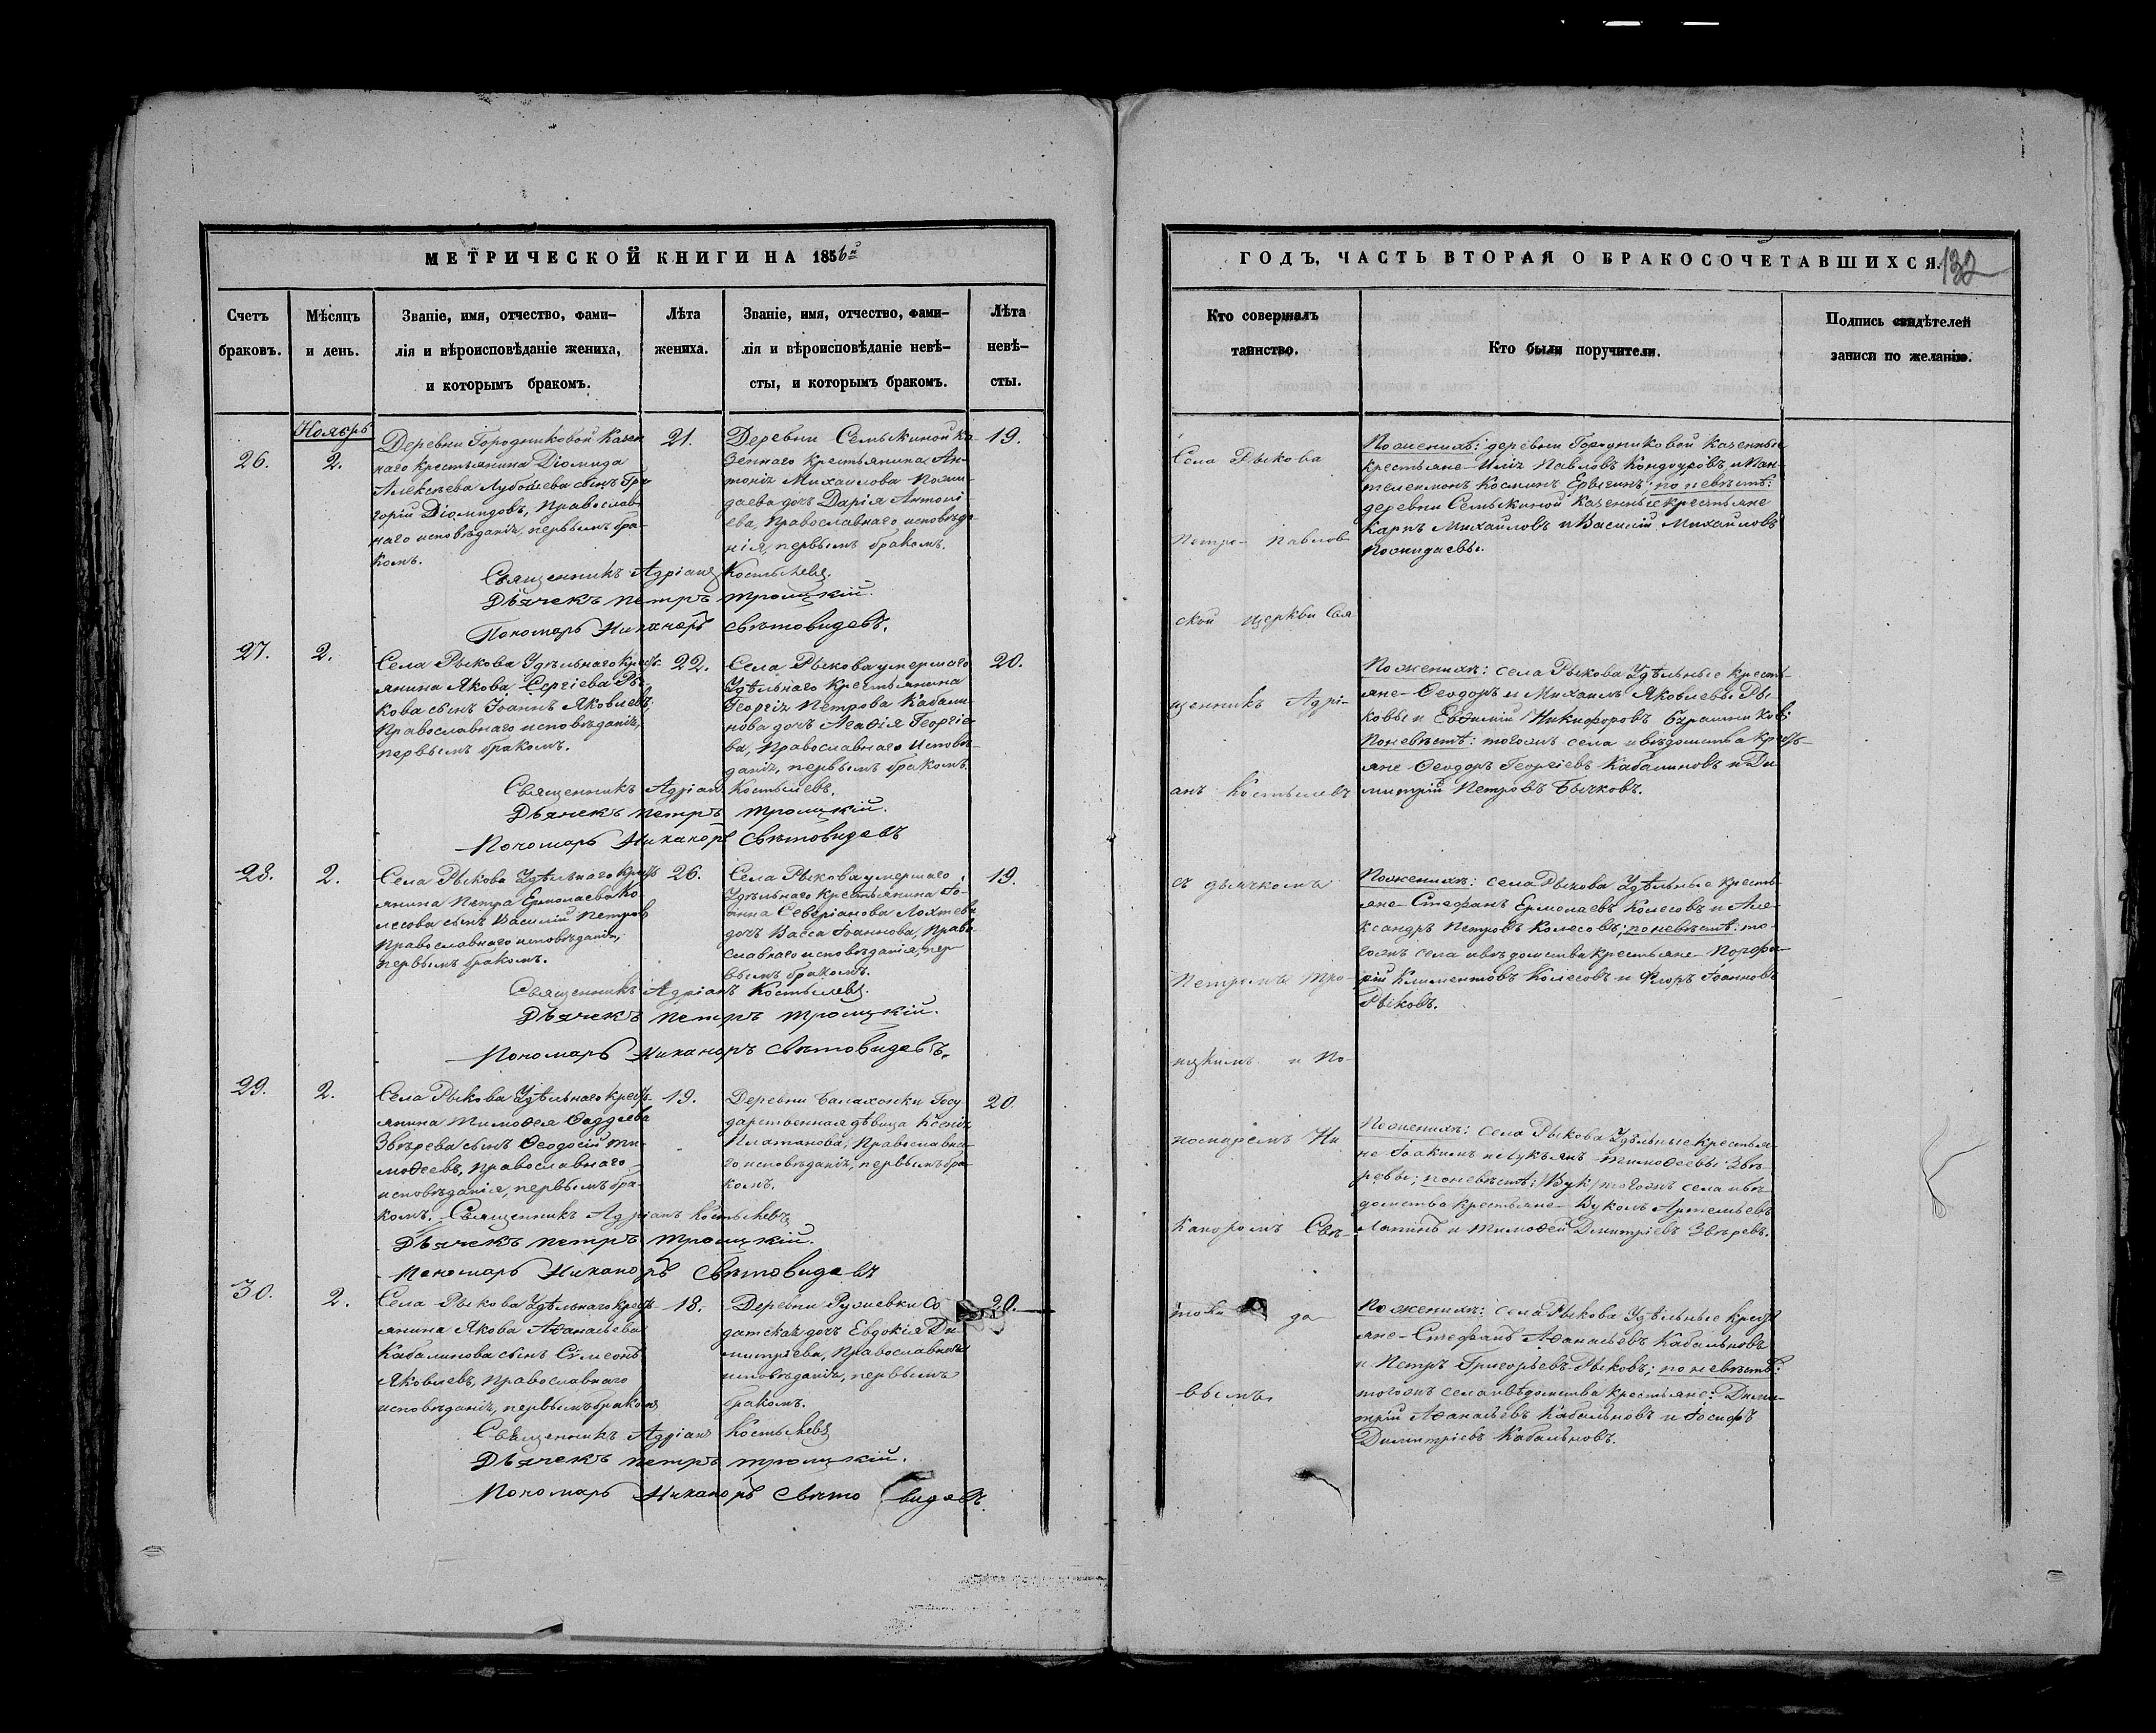 МЕТРИЧЕСКОЙ КНИГИ НА 1856й
Счетъ браковъ.
Мѣсяцъ и день.
Званіе, имя, отчество, фами–
лія и вѣроисповѣданіе жениха,
и которымъ бракомъ.
Лѣта жениха.
Званіе, имя, отчество, фами–
лія и вѣроисповѣданіе невѣ–
сты, и которымъ бракомъ.
Лѣта невѣ–
сты.
Ноябрь
26.
2.
Деревни Городниковой Казен
наго крестьянина Діомида
Алексѣева сынъ Гри
горій Діомидовъ, Православ–
наго исповѣданія, первымъ бра–
комъ.
21.
Деревни Семыкиной Ка–
зеннаго крестьянина Ан–
тонія Михайлова Пожи–
даева дочь Дарія Антоні
ева, Православнаго исповѣда–
нія, первымъ бракомъ.
19.
Священникъ Адріанъ Костылевъ.
Дьячекъ Петръ Троицкій.
Пономарь Никаноръ Свѣтовидовъ.
27.
2.
Села Рыкова Удѣльнаго крест–
янина Якова Сергіева Ры–
кова сынъ Іоаннъ Яковлевъ
Православнаго исповѣданія,
первымъ бракомъ.
22.
Села Рыкова умершаго
Удѣльнаго Крестьянина
Георгія Петрова Кабали–
нова дочь Агафія Георгіе–
ва, Православнаго исповѣ–
данія, первымъ бракомъ.
20.
Священникъ Адріанъ Костылевъ.
Дьячекъ Петръ Троицкій.
Пономарь Никаноръ Свѣтовидовъ
28.
2.
Села Рыкова Удѣльнаго крест
янина Петра Ермолаева Ко
лесова сынъ Василій Петровъ
Православнаго исповѣданія,
первымъ бракомъ.
26.
Села Рыкова умершаго
Удѣльнаго Крестьянина Іо–
анна Северіанова Лохтева
дочь Васса Іоаннова, Право
славнаго исповѣданія, пер
вымъ бракомъ.
19.
Священникъ Адріанъ Костылевъ.
Дьячекъ Петръ Троицкій.
Пономарь Никаноръ Свѣтовидовъ.
29.
2.
Села Рыкова Удѣльнаго крест–
янина Тимофея Фаддѣева
Звѣрева сынъ Феодосій Ти–
мофеевъ, Православнаго
исповѣданія, первымъ бра–
комъ.
19.
Деревни Балахонки Госу–
дарственная дѣвица Ксенія
Платонова, Православна–
го исповѣданія, первымъ бра–
комъ.
20
Священникъ Адріанъ Костылевъ
Дьячекъ Петръ Троицкій.
Пономарь Никаноръ Свѣтовидовъ
30.
2.
Села Рыкова Удѣльнаго крест–
янина Якова Афанасьева
Кабалинова сынъ Сѵмеонъ
Яковлевъ, Православнаго
исповѣданія, первымъ бракомъ
18.
Деревни
датская дочь Евдокія Ди–
митріева, Православнаго
исповѣданія, первымъ
бракомъ.
20.
Священникъ Адріанъ Костылевъ
Дьячекъ Петръ Троицкій.
Пономарь Никаноръ Свѣтовидовъ.
ГОДЪ, ЧАСТЬ ВТОРАЯ О БРАКОСОЧЕТАВШИХСЯ.
132
Кто совершалъ
таинство.
Кто были поручители.
Подпись свидѣтелей
записи по желанію.
Села Рыкова
Петро– Павлов
ской церкви Свя
щенникъ Адрі–
анъ Костылевъ
съ дьячкомъ
Петромъ Тро–
ицкимъ и По–
номаремъ Ни
каноромъ Свѣ–
товидо
вымъ.
По женихѣ: деревни Городниковой Казенные
крестьяне Илія Павловъ и Пан–
телеимонъ Косминъ; по невѣстѣ:
деревни Семыкиной Казенные крестьяне
Карпъ Михайловъ и Василій Михайловъ
Пожидаевы.
По женихѣ: села Рыкова Удѣльные кресть–
яне– Феодоръ и Михаилъ Яковлевы Ры–
ковы и Евфимій Никифоровъ
По невѣстѣ: тогожъ села и вѣдомства Крест–
яне Феодоръ Георгіевъ Кабалиновъ и Ди–
митрій Петровъ Бычковъ.
По женихѣ: села Рыкова Удѣльные кресть–
яне– Стефанъ Ермолаевъ Колесовъ и Але–
ксандръ Петровъ Колесовъ; по невѣстѣ: то–
гожъ села и вѣдомства крестьяне– Порфи–
рій Климентовъ Колесовъ и Флоръ Іоанновъ
Рыковъ.
По женихѣ: села Рыкова Удѣльные крестья–
не Іоакимъ и Лукьянъ Тимофеевы Звѣ–
ревы; по невѣстѣ: /Вук/ тогожъ села и вѣ–
домства крестьяне– Вуколъ Артемьевъ
Лапинъ и Тимофей Дмитріевъ Звѣревъ.
По женихѣ: села Рыкова Удѣльные крест
яне– Стефанъ Афанасьевъ Кабальновъ
и Петръ Григорьевъ Рыковъ; по невѣстѣ:
тогожъ села и вѣдомства крестьяне: Дими–
трій Афанасьевъ Кабальновъ и Іосифъ
Димитріевъ Кабальновъ.